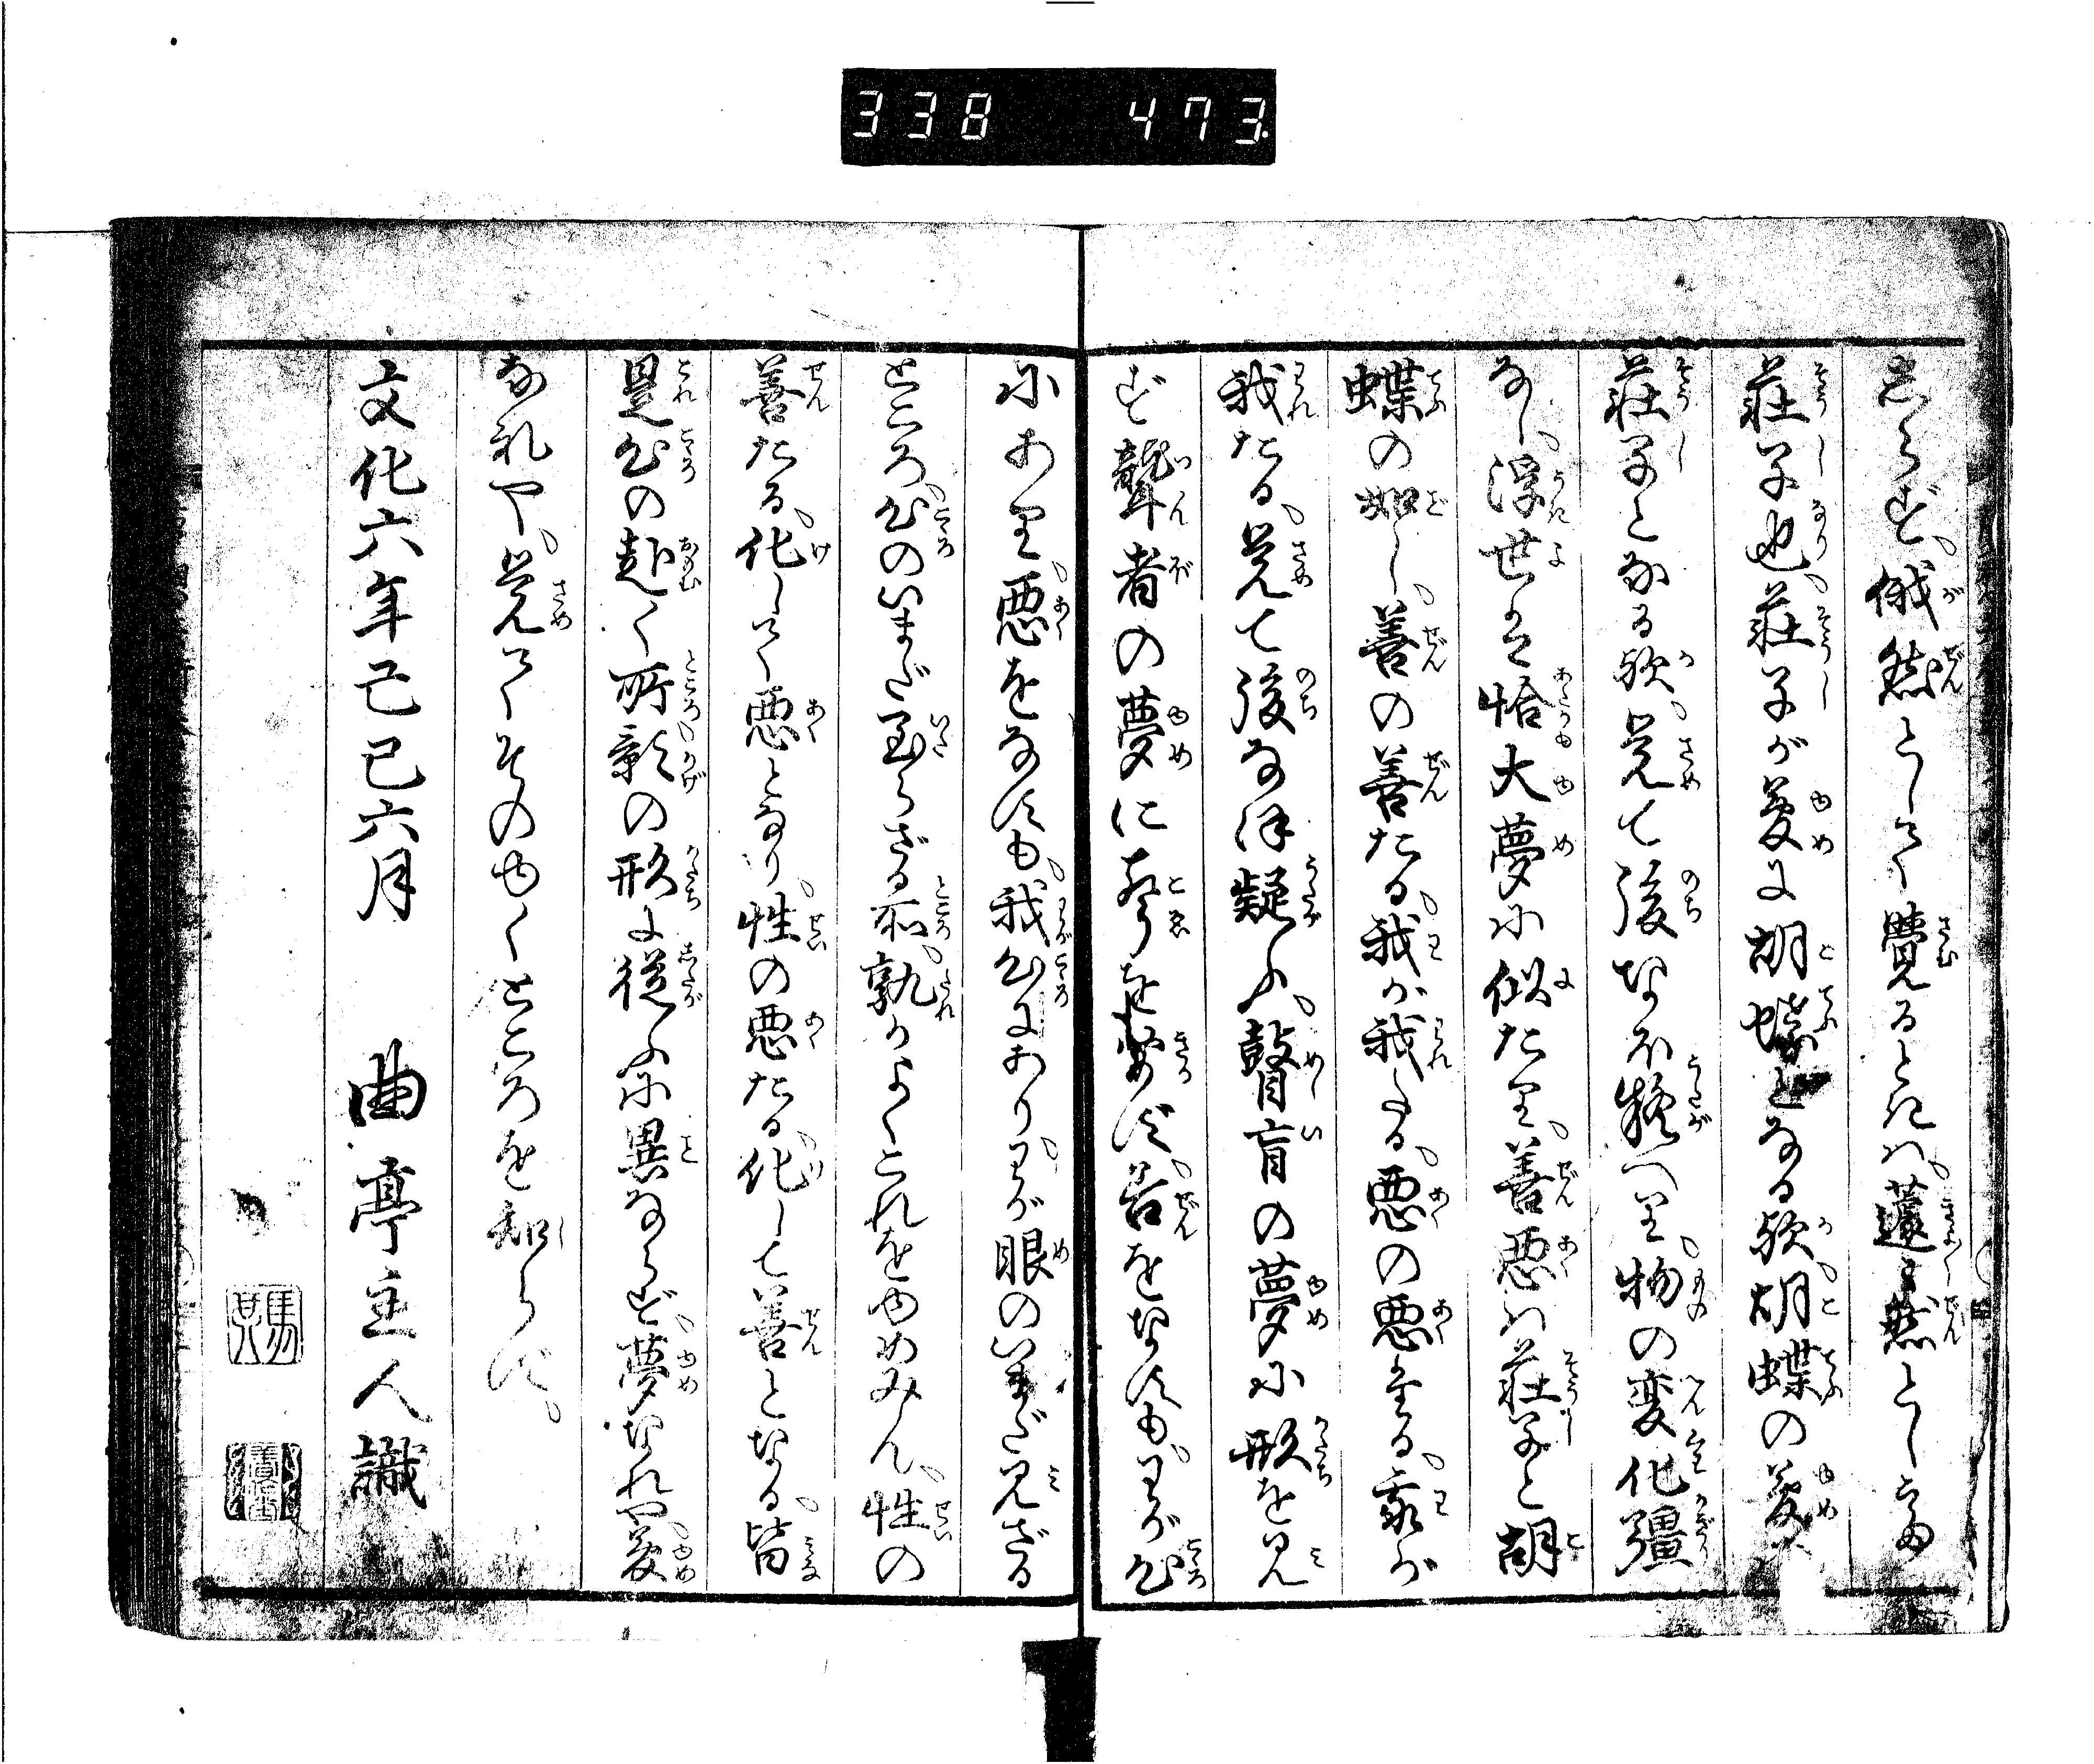 338 473
しらず、俄然として覺るときは、蘧々然として
荘子也、荘子が夢に胡蝶となる歟、胡蝶の夢
荘子となる歟、覚て後なほ疑へり、物の変化彊
なし、浮世は恰大夢に似たり、善悪は荘子と胡
蝶の如し、善の善たる、我が我たる、悪の悪たる、我が
我たる、覚て後なほ疑ふ、瞽盲の夢に形を見
ず、聾者の夢に声を夢ず、善をなすも、わが心
にあり、悪をなすも、我心にあり、わが眼のいまだ見ざる
ところ、心のいまだ至らざる所、孰かよくこれをゆめみん、性の
善たる、化して悪となり、性の悪たる、化して善となる、皆
是心の赴く所、影の形に従ふに異ならず、夢なれや、夢
なれや、覚てそのゆくところを知らず、
文化六年己巳六月 曲亭主人識